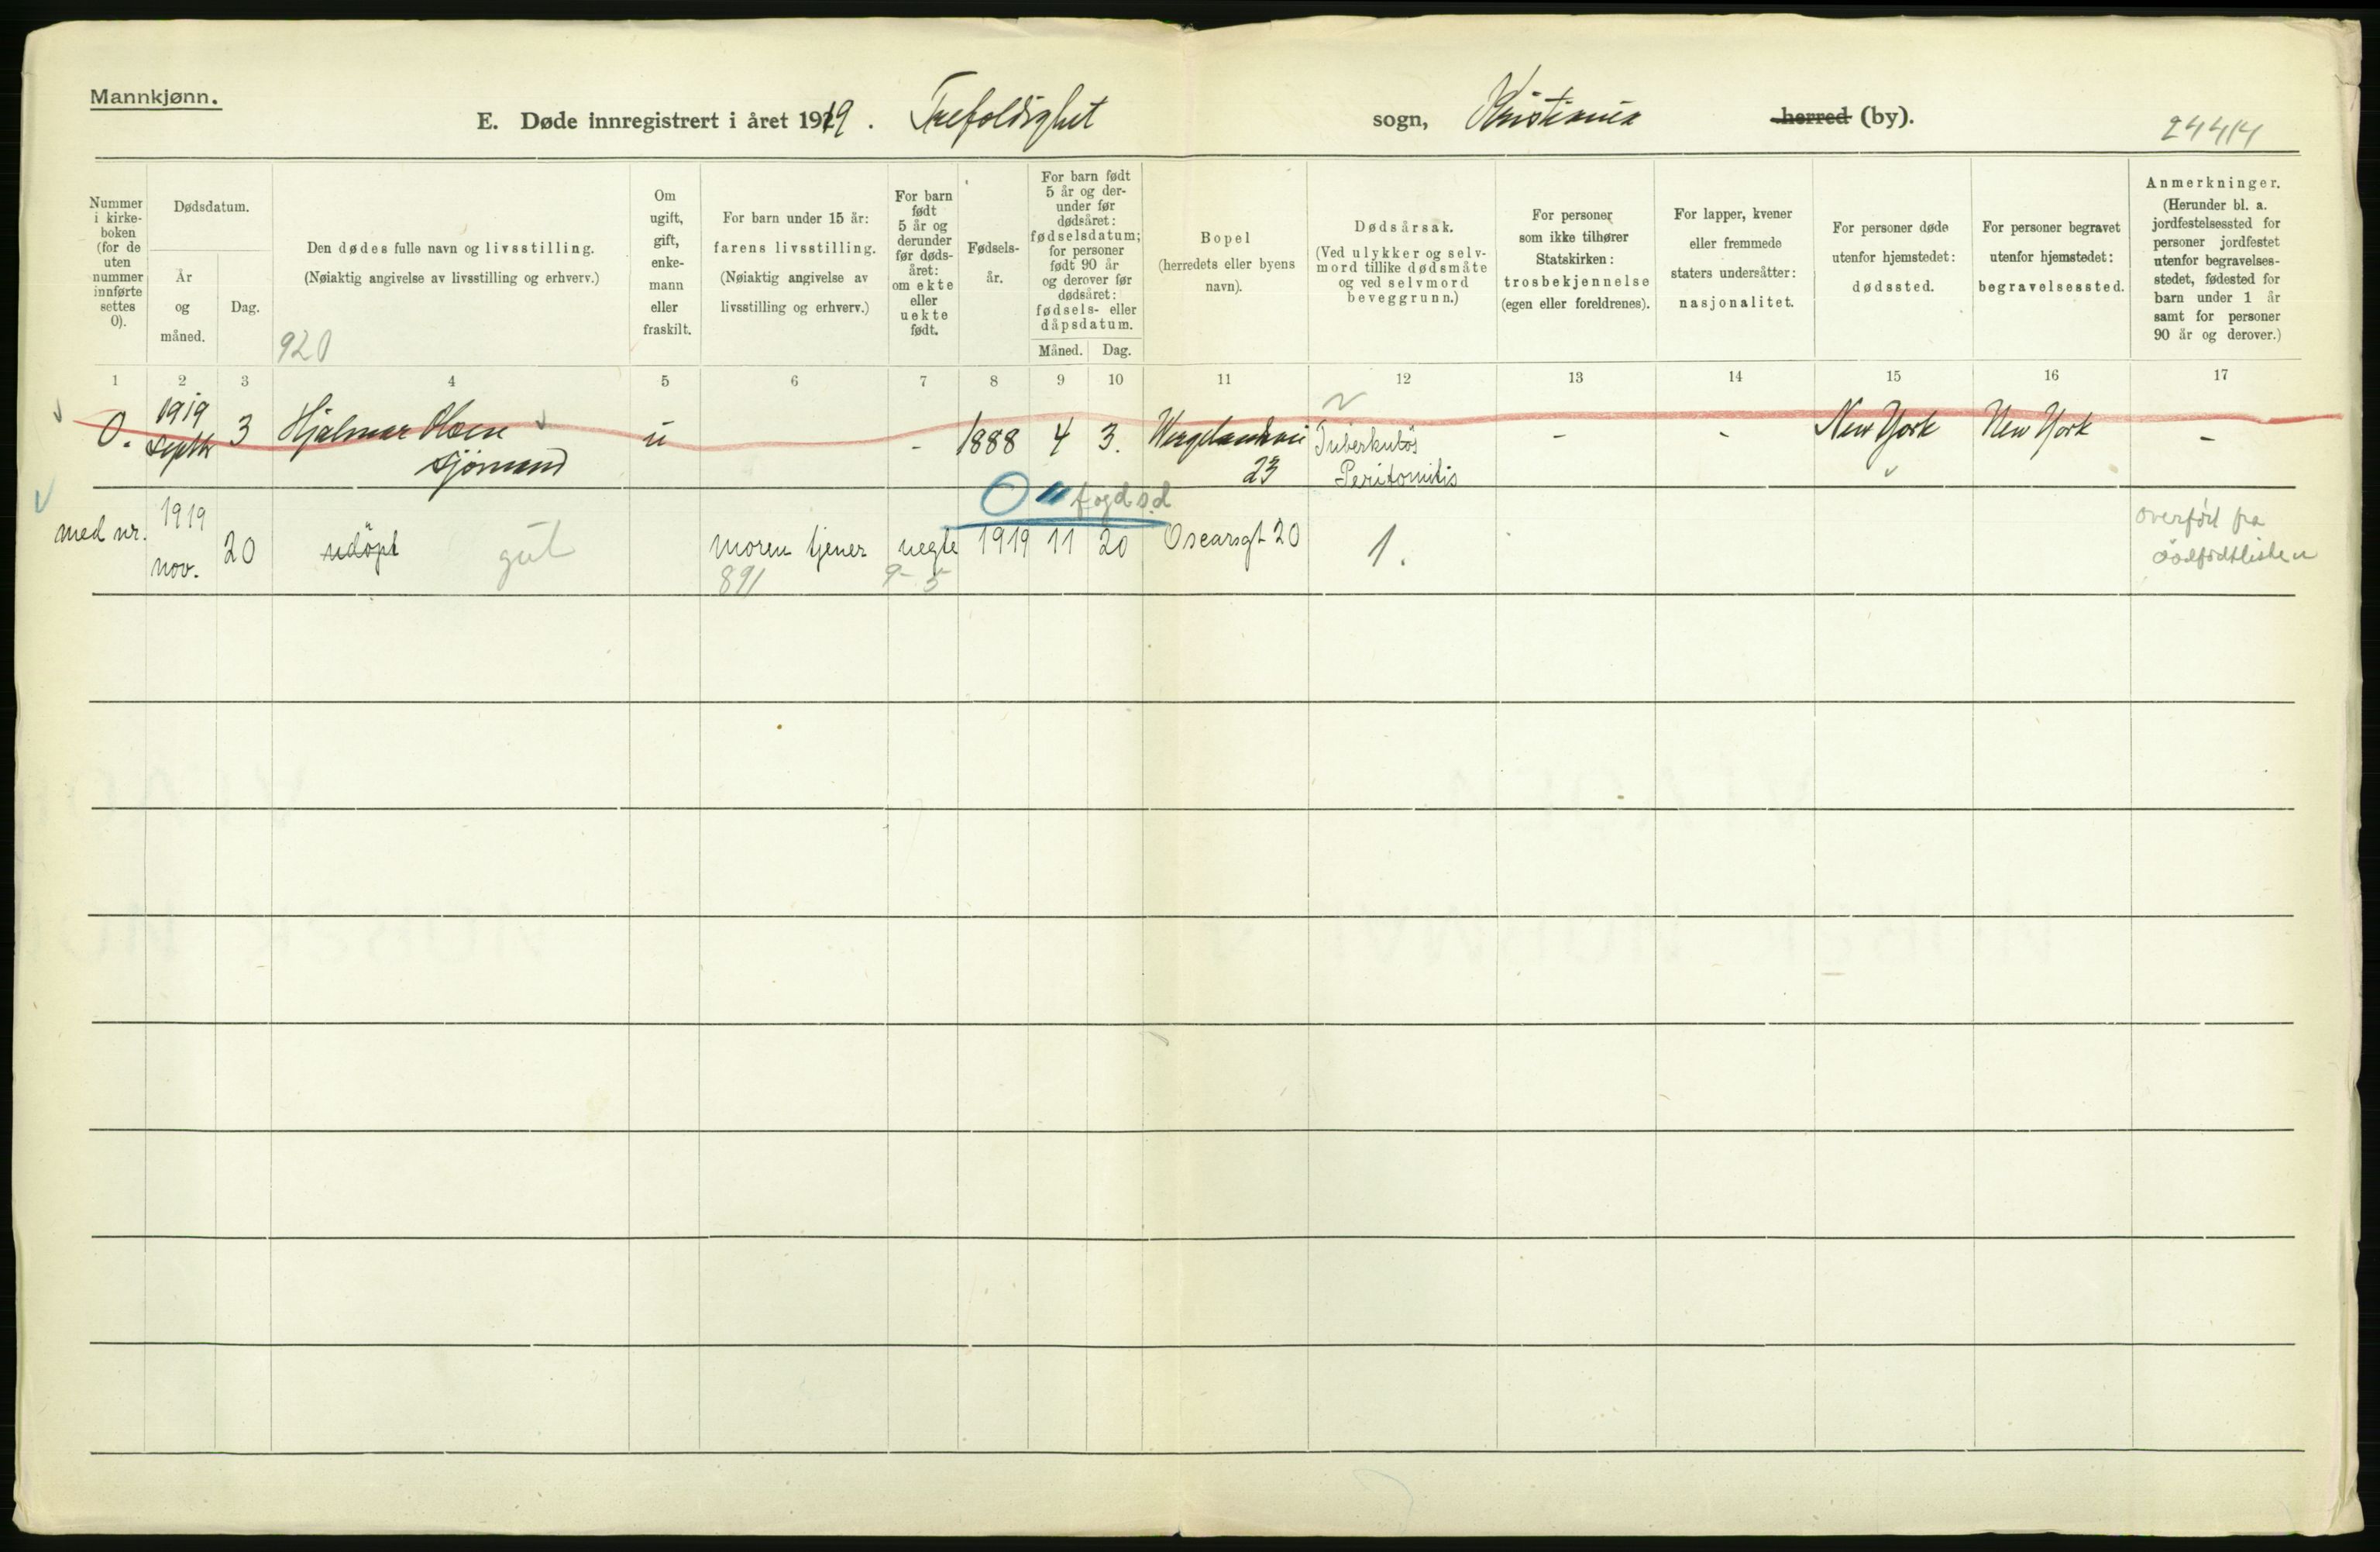 Mannkjønn.
E. Døde innregistrert i året 1919. Trefoldighet sogn, Kristiania herred (by).
24414
Nummer i kirke- boken (for de uten nummer innførte settes 0).
Dødsdatum.
År og måned.
Dag.
Den dødes fulle navn og livsstilling.
(Nøiaktig angivelse av livsstilling og erhverv.)
920
Om ugift, gift, enke- mann eller fraskilt.
For barn under 15 år:
farens livsstilling.
(Nøiaktig angivelse av
livsstilling og erhverv.)
For barn født 5 år og derunder før døds- året: om ekte eller uekte født.
Fødsels- år.
For barn født 5 år og der- under før dødsåret: fødselsdatum; for personer født 90 år og derover før dødsåret: fødsels- eller dåpsdatum.
Måned.
Dag.
Bopel
(herredets eller byens
navn).
Dødsårsak.
(Ved ulykker og selv-
mord tillike dødsmåte
og ved selvmord
beveggrunn.)
For personer
som ikke tilhører
Statskirken:
trosbekjennelse
(egen eller foreldrenes).
For lapper, kvener
eller fremmede
staters undersåtter:
nasjonalitet.
For personer døde
utenfor hjemstedet:
dødssted.
For personer begravet
utenfor hjemstedet:
begravelsessted.
Anmerkninger.
(Herunder bl. a.
jordfestelsessted for
personer jordfestet
utenfor begravelses-
stedet, fødested for
barn under 1 år
samt for personer
90 år og derover.)
1 2 3 4 5 6 7 8 9 10 11 12 13 14 15 16 17
0. 1919 Septbr 3 Hjalmar Olsen u - 1888 4 3. Wergelandsvei Tuberkuløs - - New York New York -
sjömand 23 Peritonitis
0 " f og d s.d
med nr. 1919 nov. 20 udöpt gut moren tjener uegte 1919 11 20 Oscarsgt 20 1. overført fra
891 9-5 dødfødtlisten